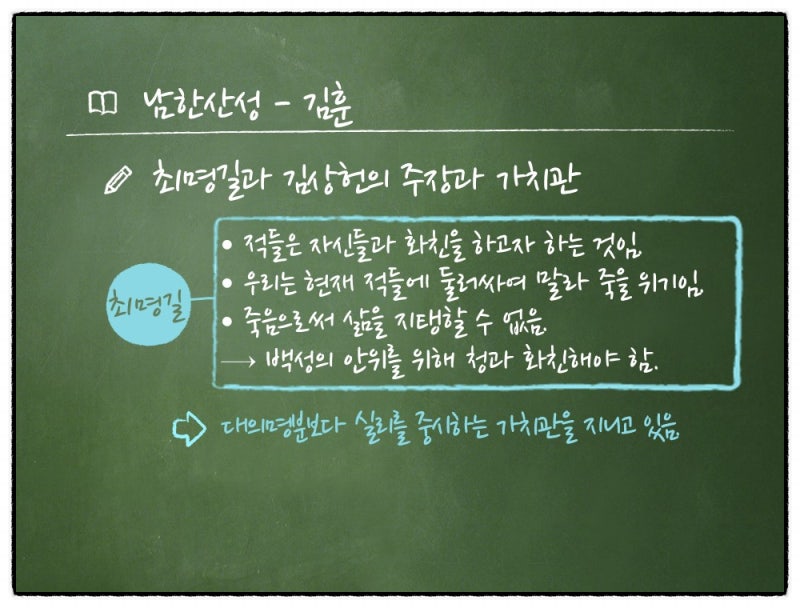 남한산성 - 김훈
최명길과 김상헌의 주장과 가치관
• 적들은 자신들과 화친을 하고자 하는 것임.
• 우리는 현재 적들에 둘러싸여 말라 죽을 위기임.
최명길
• 죽음으로써 삶을 지탱할 수 없음.
→ 백성의 안위를 위해 청과 화친해야 함.
⇨ 대의명분보다 실리를 중시하는 가치관을 지니고 있음